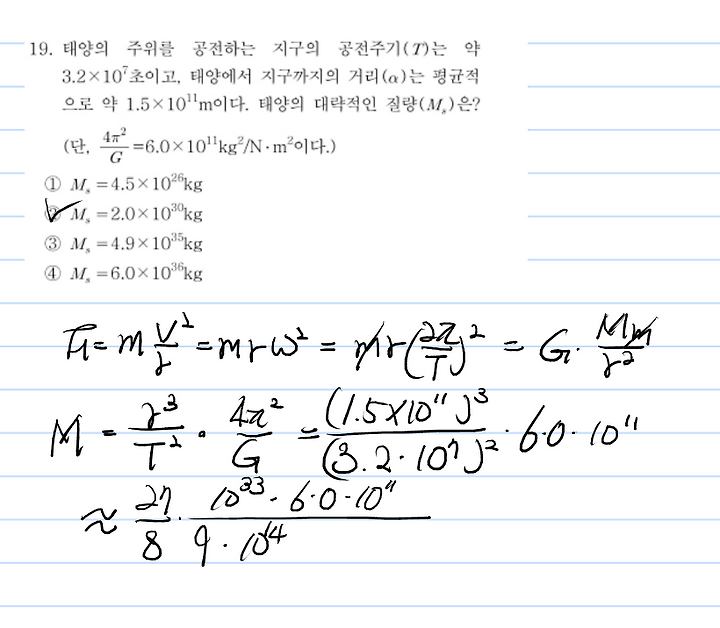 19. 태양의 주위를 공전하는 지구의 공전주기(T)는 약
3.2×10⁷초이고, 태양에서 지구까지의 거리(α)는 평균적
으로 약 1.5×10¹¹m이다. 태양의 대략적인 질량(Mₛ)은?
(단, 4π²/G=6.0×10¹¹kg²/N·m²이다.)
① Mₛ=4.5×10²⁶kg
② Mₛ=2.0×10³⁰kg
③ Mₛ=4.9×10³⁵kg
④ Mₛ=6.0×10³⁶kg
= m v²/r = mrω² = mr(2π/T)² = G· Mm/r²
M = r³/T² · 4π²/G = (1.5×10¹¹)³/(3.2·10⁷)² · 6.0·10¹¹
≈ 27/8 · 10³³·6.0·10¹¹/9·10¹⁴